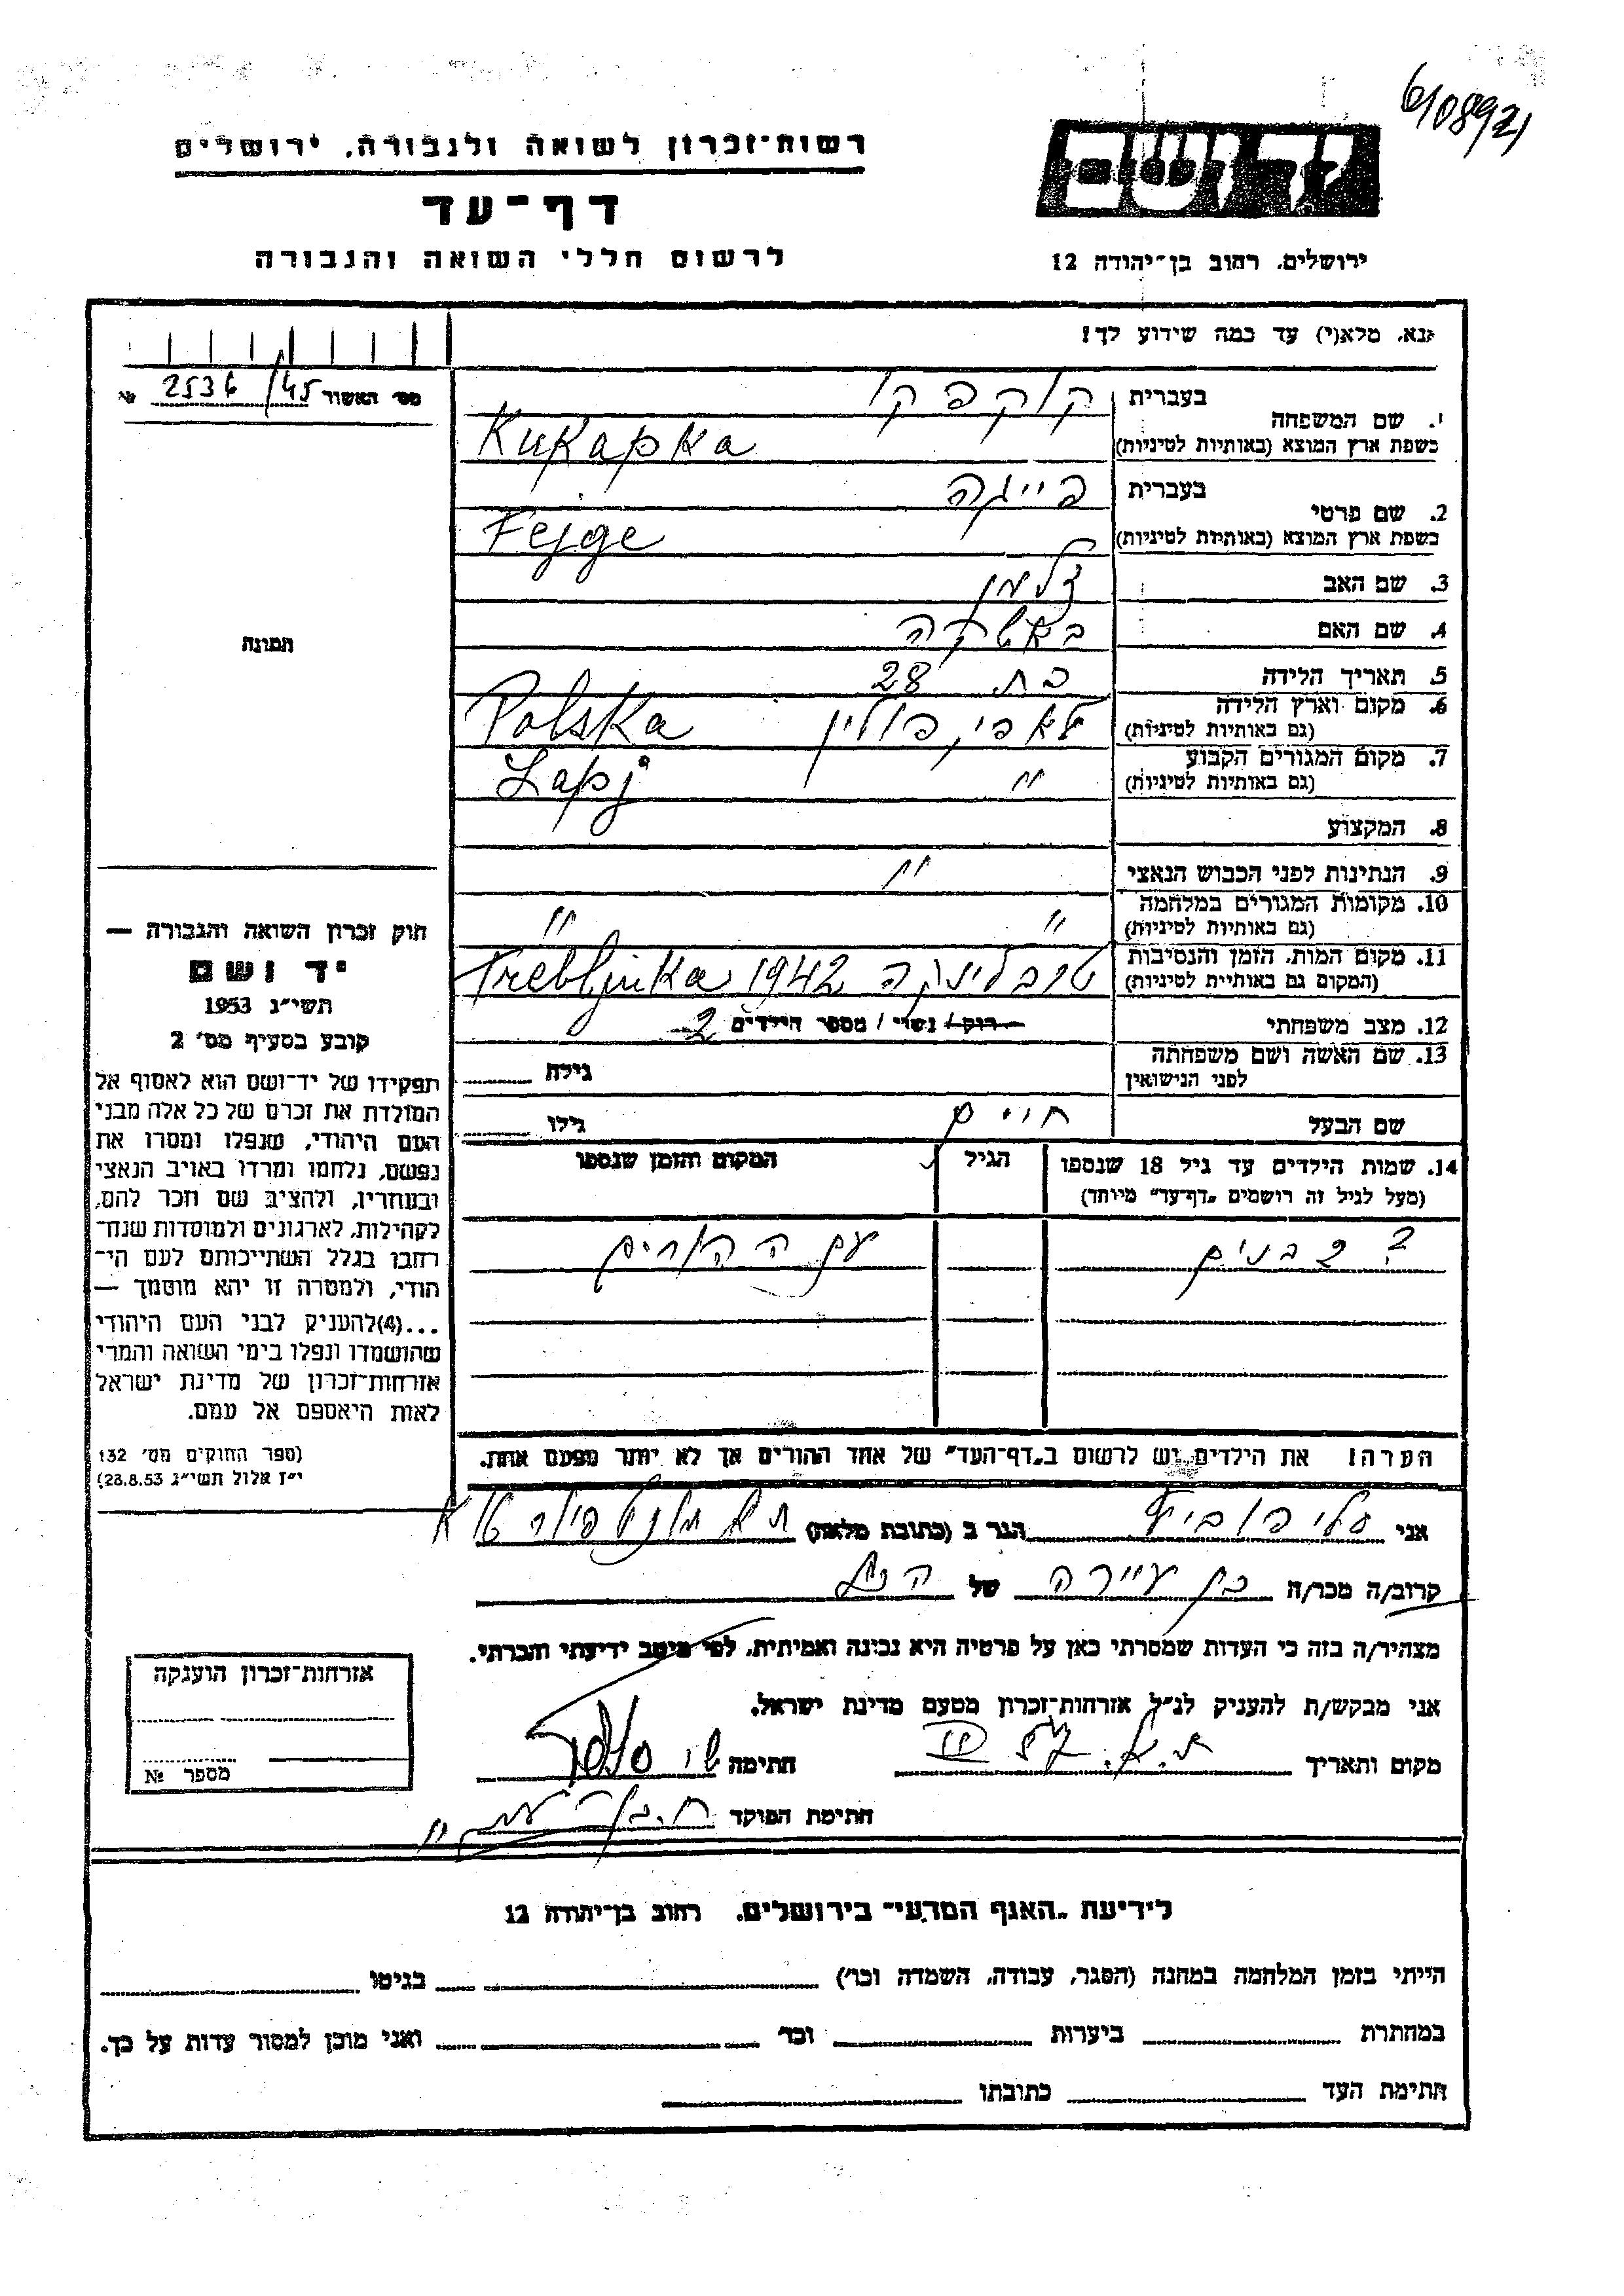 6/0892/1
רשות-זכרון לשואה ולגבורה, ירושלים
דף-עד
לרשום חללי השואה והגבורה
יד ושם
ירושלים, רחוב בן-יהודה 12
נא, מלא(י) עד כמה שידוע לך!
מס' האשור 2536/45 №
1. שם המשפחה
בעברית
כשפת ארץ המוצא (באותיות לטיניות)
Kukapka
2. שם פרטי
בעברית פייגה
כשפת ארץ המוצא (באותיות לטיניות)
Fejge
3. שם האב זלמן
4. שם האם
5. תאריך הלידה בת 28
6. מקום וארץ הלידה
(גם באותיות לטיניות)
לאפי, פולין Polska
7. מקום המגורים הקבוע
(גם באותיות לטיניות)
" Lapj
8. המקצוע
9. הנתינות לפני הכבוש הנאצי "
10. מקומות המגורים במלחמה
(גם באותיות לטיניות)
" "
11. מקום המות, הזמן והנסיבות
(המקום גם באותיית לטיניות)
טרבלינקה 1942 Trebljnka
12. מצב משפחתי רוק / נשוי / מספר הילדים 2
13. שם האשה ושם משפחתה
לפני הנישואין
גילה
שם הבעל חיים גילו
14. שמות הילדים עד גיל 18 שנספו
(מעל לגיל זה רושמים "דף-עד" מיוחד)
הגיל
המקום והזמן שנספו
? 2 בנים עם ההורים
הערה! את הילדים יש לרשום ב"דף-העד" של אחד ההורים אך לא יותר מפעם אחת.
תמונה
חוק זכרון השואה והגבורה —
יד ושם
תשי"ג 1953
קובע בסעיף מס' 2
תפקידו של יד-ושם הוא לאסוף אל
המולדת את זכרם של כל אלה מבני
העם היהודי, שנפלו ומסרו את
נפשם, נלחמו ומרדו באויב הנאצי
ובעוזריו, ולהציב שם וזכר להם,
לקהילות, לארגונים ולמוסדות שנח-
רחבו בגלל השתייכותם לעם הי-
הודי, ולמטרה זו יהא מוסמך —
...(4)להעניק לבני העם היהודי
שהושמדו ונפלו בימי השואה והמרי
אזרחות-זכרון של מדינת ישראל
לאות היאספם אל עמם.
(ספר החוקים מס' 132
י"ז אלול תשי"ג 28.8.53)
אני הגר ב (כתובת מלאה)
קרוב/ה מכר/ה בן עיירה של הנ"ל
מצהיר/ה בזה כי העדות שמסרתי כאן על פרטיה היא נכונה ואמיתית, לפי מיטב ידיעתי והכרתי.
אני מבקש/ת להעניק לנ"ל אזרחות-זכרון מטעם מדינת ישראל.
מקום ותאריך ת.א. חתימה
חתימת הפוקד
אזרחות-זכרון הוענקה
מספר №
לידיעת "האגף המדעי" בירושלים, רחוב בן-יהודה 12
הייתי בזמן המלחמה במחנה (הסגר, עבודה, השמדה וכו') בגיטו
במחתרת ביערות וכו' ואני מוכן למסור עדות על כך.
חתימת העד כתובתו